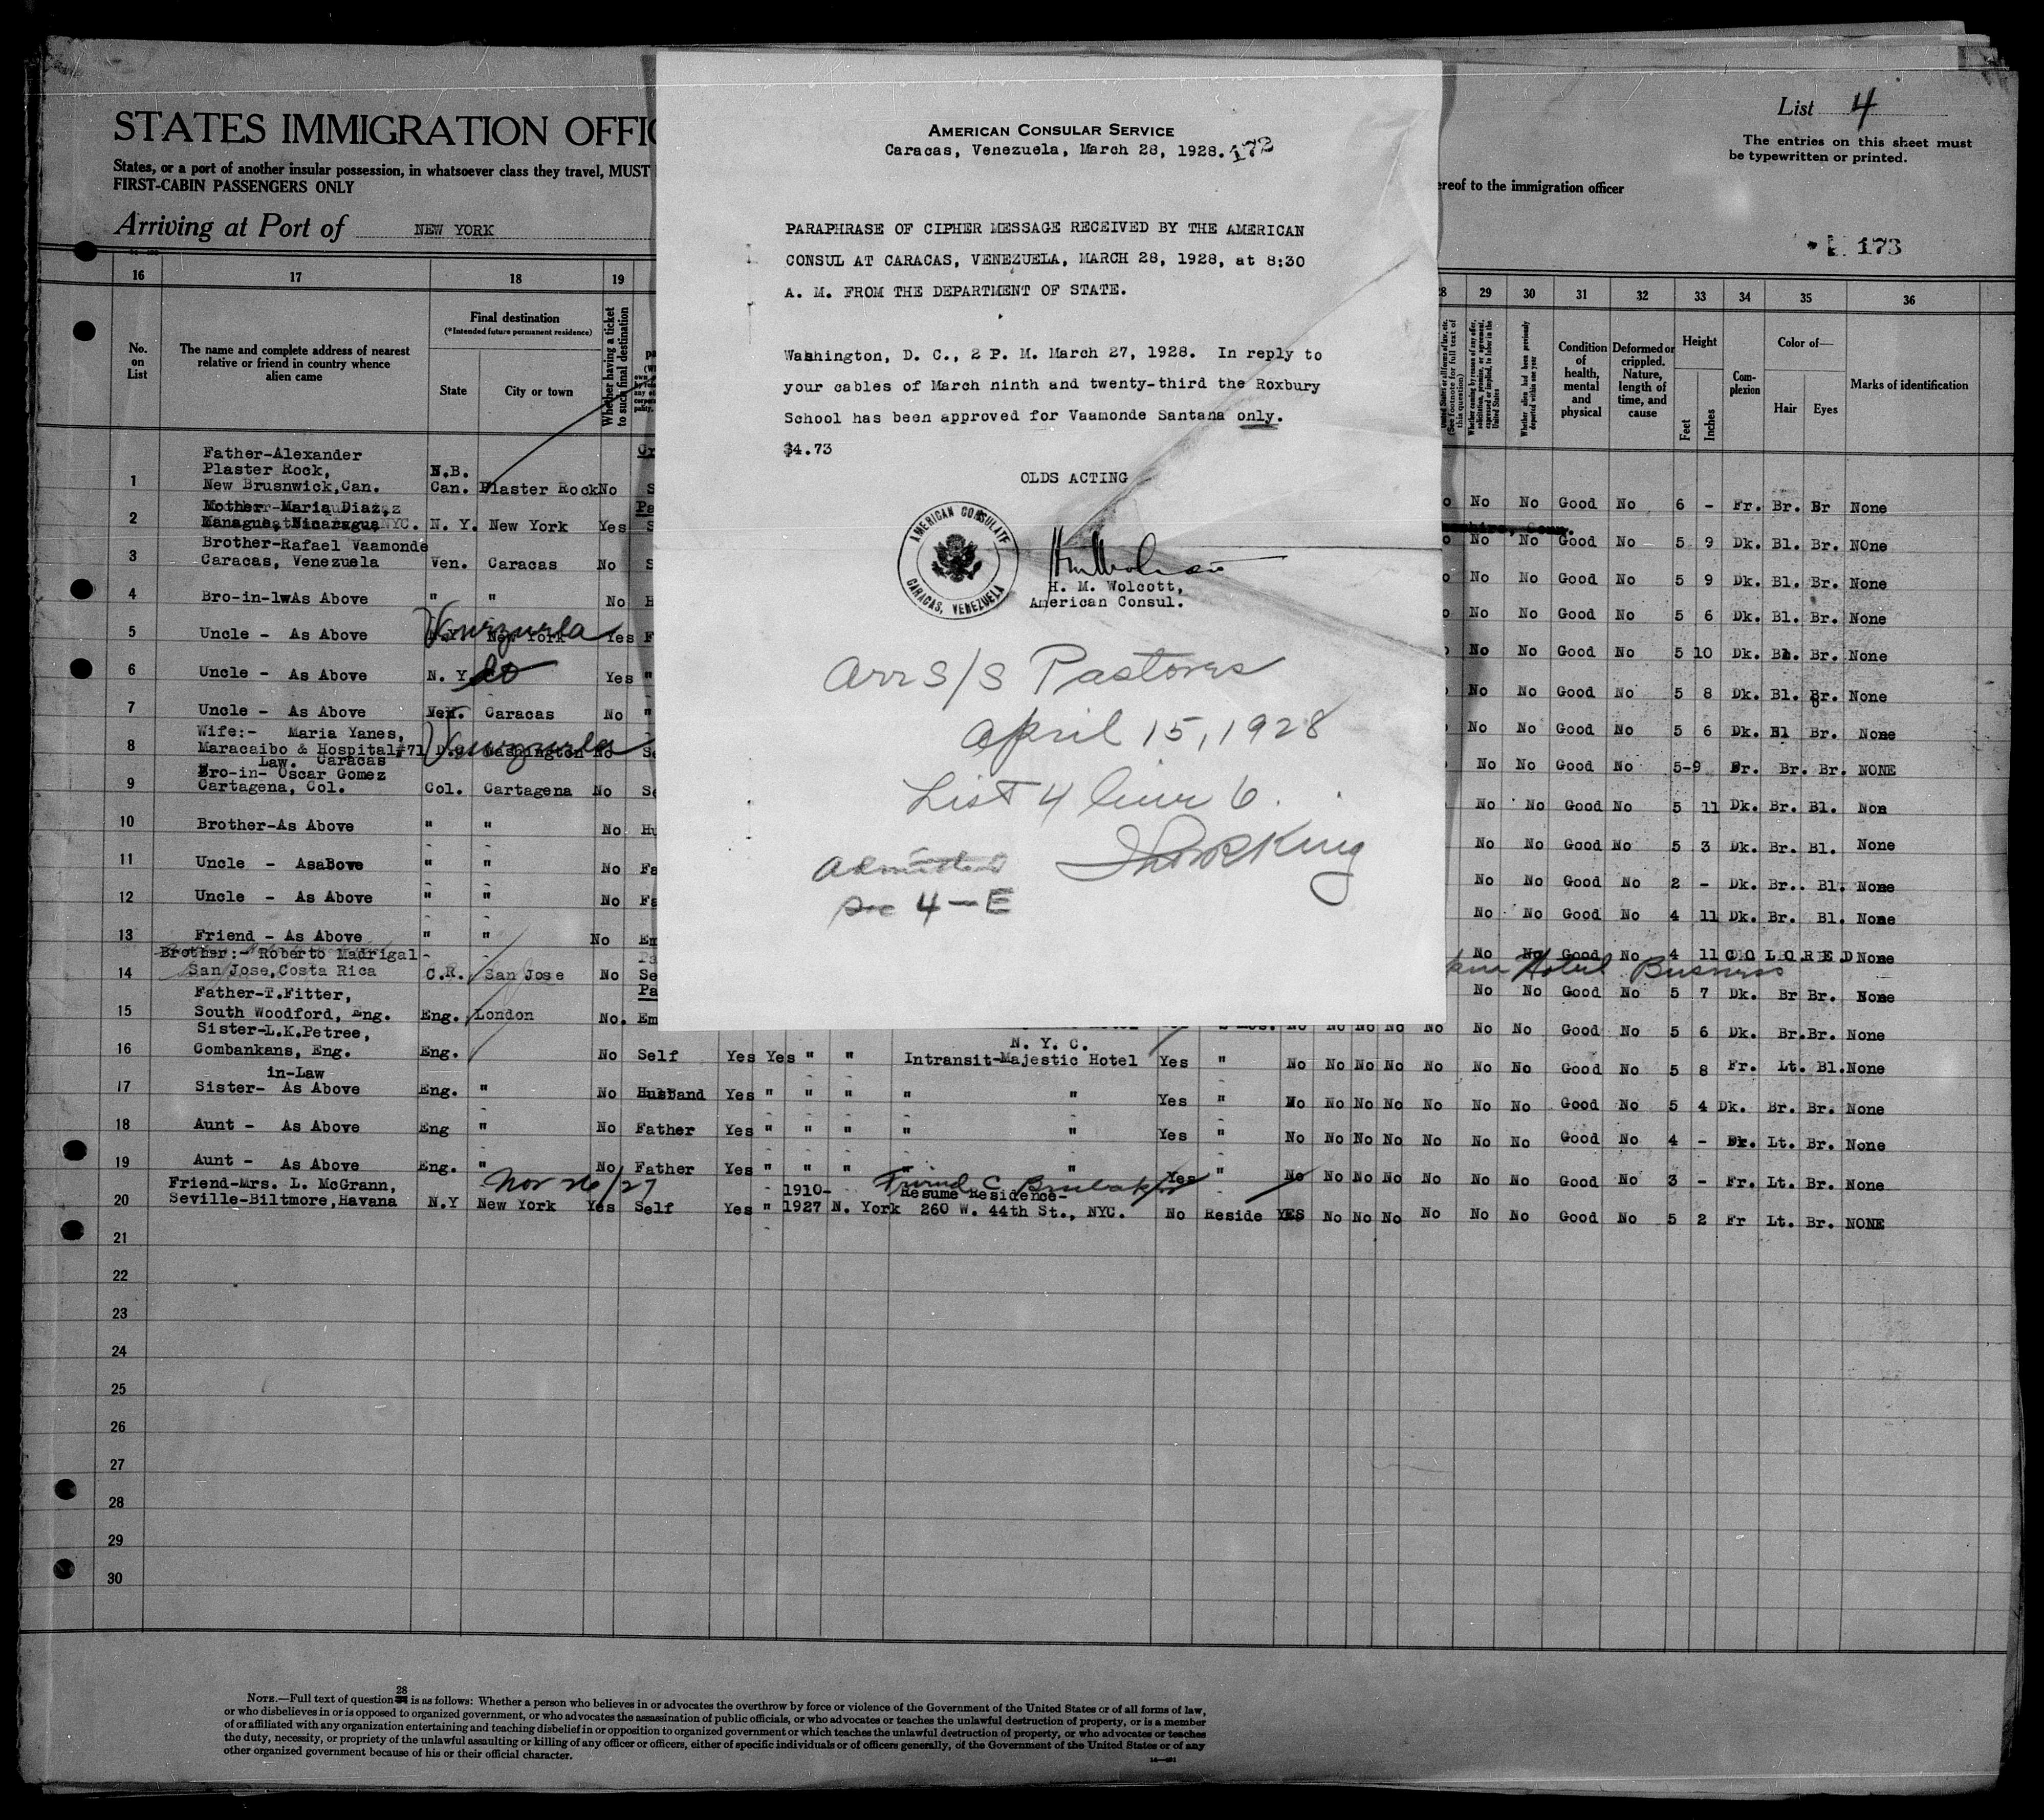 STATES IMMIGRATION OFFIC
States, or a port of another insular possession, in whatsoever class they travel, MUST
FIRST-CABIN PASSENGERS ONLY
Arriving at Port of NEW YORK
ereof to the immigration officer
List 4
The entries on this sheet must
be typewritten or printed.
173
AMERICAN CONSULAR SERVICE
Caracas, Venezuela, March 28, 1928. 172
PARAPHRASE OF CIPHER MESSAGE RECEIVED BY THE AMERICAN
CONSUL AT CARACAS, VENEZUELA, MARCH 28, 1928, at 8:30
A. M. FROM THE DEPARTMENT OF STATE.
Washington, D. C., 2 P. M. March 27, 1928. In reply to
your cables of March ninth and twenty-third the Roxbury
School has been approved for Vaamonde Santana only.
$4.73
OLDS ACTING
AMERICAN CONSULATE
CARACAS, VENEZUELA
H. M. Wolcott,
American Consul.
Arr S/S Pastores
April 15, 1928
List 4 line 6.
King
Admitted
Sec 4-E
16 17 18 19
29 30 31 32 33 34 35 36
No. on List
The name and complete address of nearest
relative or friend in country whence
alien came
Final destination
(*Intended future permanent residence)
State
City or town
Whether having a ticket
to such final destination
Condition of health, mental and physical
Deformed or crippled. Nature, length of time, and cause
Height
Feet
Inches
Complexion
Color of—
Hair
Eyes
Marks of identification
1 Father-Alexander
Plaster Rock,
New Brusnwick,Can. N.B. Can. Plaster Rock No
No No Good No 6 - Fr. Br. Br None
2 N. Y. New York Yes
No No Good No 5 9 Dk. Bl. Br. NOne
3 Brother-Rafael Vaamonde
Caracas, Venezuela Ven. Caracas No
No No Good No 5 9 Dk. Bl. Br. None
4 Bro-in-lwAs Above " " No
No No Good No 5 6 Dk. Bl. Br. None
5 Uncle - As Above N.Y. New York Venezuela Yes
No No Good No 5 10 Dk. Bl. Br. None
6 Uncle - As Above N. Y do Yes "
No No Good No 5 8 Dk. Bl. Br. None
7 Uncle - As Above Ven. Caracas No "
No No Good No 5 6 Dk. Bl Br. None
8 Wife:- Maria Yanes,
Maracaibo & Hospital#71 D.C. Washington Venezuela No
Law. Caracas
No No Good No 5-9 Br. Br. NONE
9 Bro-in- Oscar Gomez
Cartagena, Col. Col. Cartagena No
No No Good No 5 11 Dk. Br. Bl. Non
10 Brother-As Above " " No Hu
No No Good No 5 3 Dk. Br. Bl. None
11 Uncle - AsaBove " " No Fa
No No Good No 2 - Dk. Br.. Bl. None
12 Uncle - As Above " " No Fa
No No Good No 4 11 Dk. Br. Bl. None
13 Friend - As Above " " No Em
No No Good No 4 11 COLORED None
14 Brother:- Roberto Madrigal
San Jose,Costa Rica C.R. San Jose No Se
Hotel Business
No No Good No 5 7 Dk. Br Br. None
15 Father-T.Fitter,
South Woodford, Eng. Eng. London No. Em
No No Good No 5 6 Dk. Br.Br. None
16 Sister-L.K.Petree,
Combankans, Eng. Eng. No Self Yes Yes " " N. Y. C.
Intransit-Majestic Hotel Yes " No No No No No No No Good No 5 8 Fr. Lt. Bl.None
17 in-Law
Sister- As Above Eng. " No Husband Yes " " " " " Yes " No No No No No No No Good No 5 4 Dk. Br. Br. None
18 Aunt - As Above Eng " No Father Yes " " " " " Yes " No No No No No No No Good No 4 - Lt. Br. None
19 Aunt - As Above Eng. " No Father Yes " " " " " Yes " No No No No No No No Good No 3 - Fr. Lt. Br. None
Nov 26/27
Friend C
20 Friend-Mrs. L. McGrann,
Seville-Biltmore,Havana N.Y New York Yes Self Yes " 1910-
1927 N. York Resume Residence-
260 W. 44th St., NYC. No Reside YES No No No No No No Good No 5 2 Fr Lt. Br. NONE
21
22
23
24
25
26
27
28
29
30
28
NOTE.—Full text of question is as follows: Whether a person who believes in or advocates the overthrow by force or violence of the Government of the United States or of all forms of law,
or who disbelieves in or is opposed to organized government, or who advocates the assassination of public officials, or who advocates or teaches the unlawful destruction of property, or is a member
of or affiliated with any organization entertaining and teaching disbelief in or opposition to organized government or which teaches the unlawful destruction of property, or who advocates or teaches
the duty, necessity, or propriety of the unlawful assaulting or killing of any officer or officers, either of specific individuals or of officers generally, of the Government of the United States or of any
other organized government because of his or their official character.